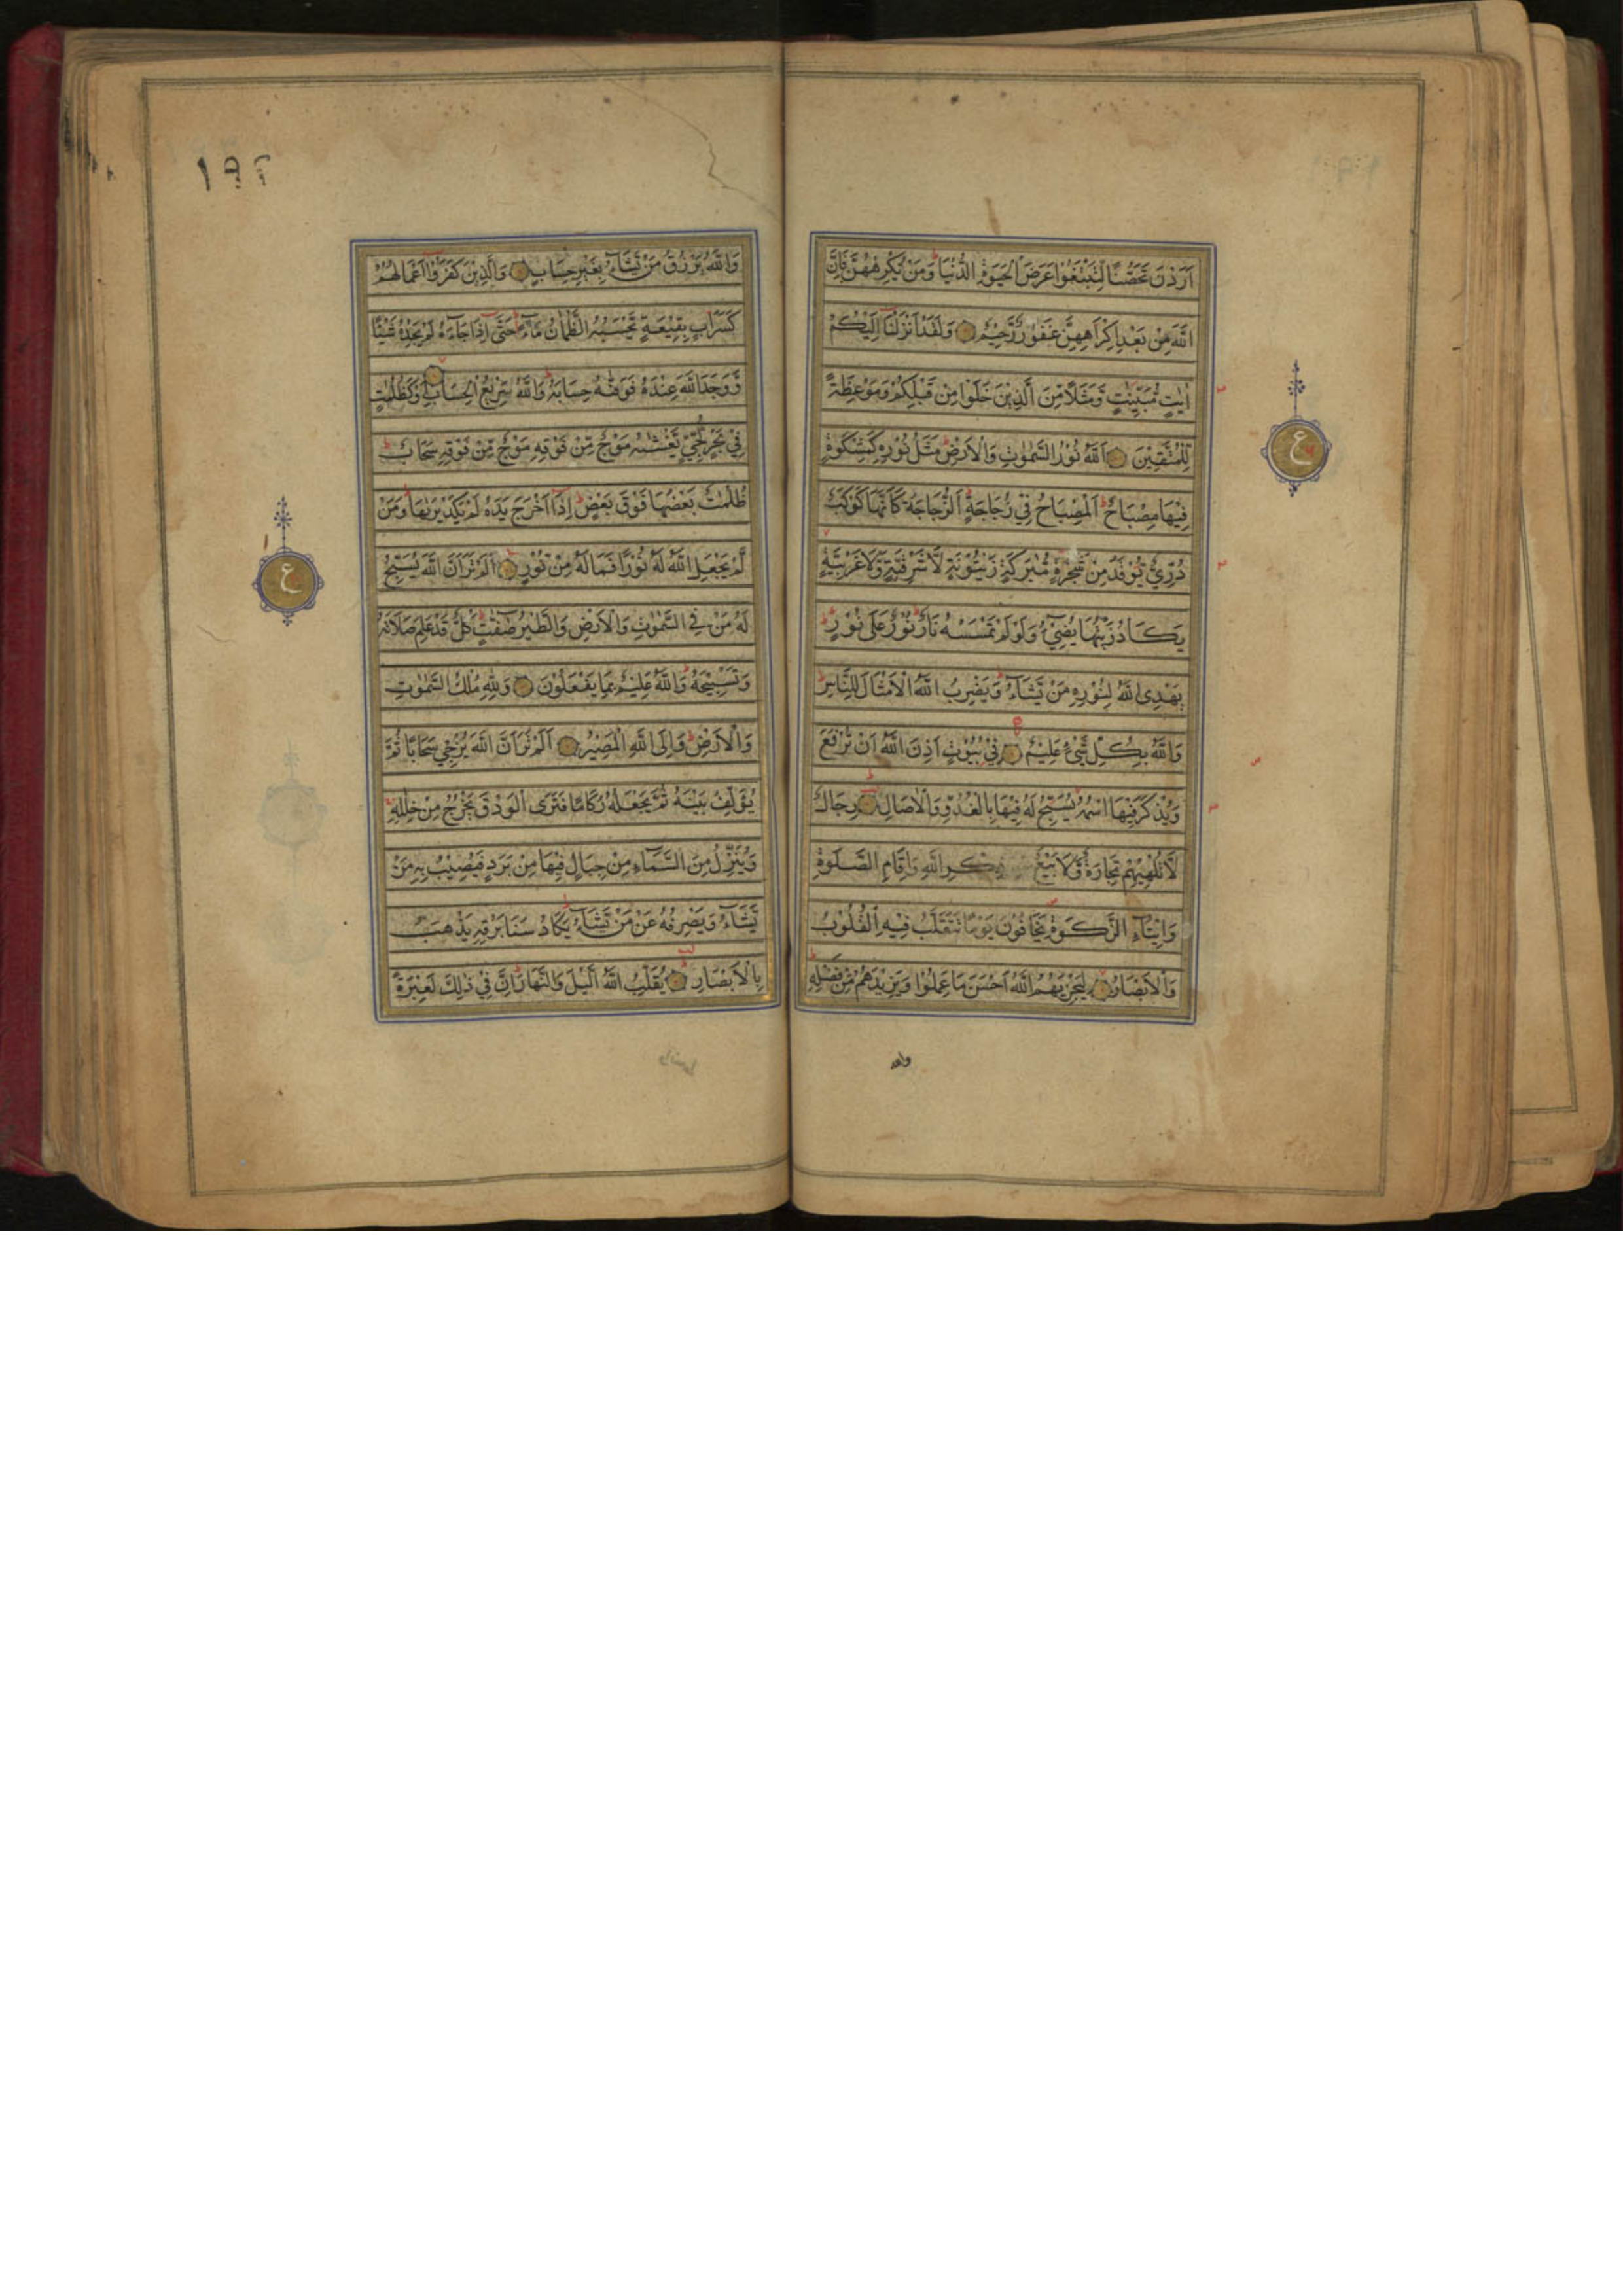 اَرَدْنَ تَحَصُّنًا لِّتَبْتَغُوْا عَرَضَ الْحَيٰوةِ الدُّنْيَا وَمَنْ يُّكْرِهْهُّنَّ فَاِنَّ
اللّٰهَ مِنْ بَعْدِ اِكْرَاهِهِنَّ غَفُوْرٌ رَّحِيْمٌ وَلَقَدْ اَنْزَلْنَا اِلَيْكُمْ
اٰيٰتٍ مُّبَيِّنٰتٍ وَّمَثَلًا مِّنَ الَّذِيْنَ خَلَوْا مِنْ قَبْلِكُمْ وَمَوْعِظَةً
لِّلْمُتَّقِيْنَ اَللّٰهُ نُوْرُ السَّمٰوٰتِ وَالْاَرْضِ مَثَلُ نُوْرِهٖ كَمِشْكٰوةٍ
فِيْهَا مِصْبَاحٌ اَلْمِصْبَاحُ فِيْ زُجَاجَةٍ اَلزُّجَاجَةُ كَاَنَّهَا كَوْكَبٌ
دُرِّيٌّ يُّوْقَدُ مِنْ شَجَرَةٍ مُّبٰرَكَةٍ زَيْتُوْنَةٍ لَّا شَرْقِيَّةٍ وَّلَا غَرْبِيَّةٍ
يَكَادُ زَيْتُهَا يُضِيْٓءُ وَلَوْ لَمْ تَمْسَسْهُ نَارٌ نُوْرٌ عَلٰى نُوْرٍ
يَهْدِى اللّٰهُ لِنُوْرِهٖ مَنْ يَّشَآءُ وَيَضْرِبُ اللّٰهُ الْاَمْثَالَ لِلنَّاسِ
وَاللّٰهُ بِكُلِّ شَيْءٍ عَلِيْمٌ فِيْ بُيُوْتٍ اَذِنَ اللّٰهُ اَنْ تُرْفَعَ
وَيُذْكَرَ فِيْهَا اسْمُهٗ يُسَبِّحُ لَهٗ فِيْهَا بِالْغُدُوِّ وَالْاٰصَالِ رِجَالٌ
لَّا تُلْهِيْهِمْ تِجَارَةٌ وَّلَا بَيْعٌ ذِكْرِ اللّٰهِ وَاِقَامِ الصَّلٰوةِ
وَاِيْتَآءِ الزَّكٰوةِ يَخَافُوْنَ يَوْمًا تَتَقَلَّبُ فِيْهِ الْقُلُوْبُ
وَالْاَبْصَارُ لِيَجْزِيَهُمُ اللّٰهُ اَحْسَنَ مَا عَمِلُوْا وَيَزِيْدَهُمْ مِّنْ فَضْلِهٖ
والله
١٩٢
وَاللّٰهُ يَرْزُقُ مَنْ يَّشَآءُ بِغَيْرِ حِسَابٍ وَالَّذِيْنَ كَفَرُوْٓا اَعْمَالُهُمْ
كَسَرَابٍ بِقِيْعَةٍ يَّحْسَبُهُ الظَّمْاٰنُ مَآءً حَتّٰى اِذَا جَآءَهٗ لَمْ يَجِدْهُ شَيْئًا
وَّوَجَدَ اللّٰهَ عِنْدَهٗ فَوَفّٰىهُ حِسَابَهٗ وَاللّٰهُ سَرِيْعُ الْحِسَابِ اَوْ كَظُلُمٰتٍ
فِيْ بَحْرٍ لُّجِّيٍّ يَّغْشٰىهُ مَوْجٌ مِّنْ فَوْقِهٖ مَوْجٌ مِّنْ فَوْقِهٖ سَحَابٌ
ظُلُمٰتٌ بَعْضُهَا فَوْقَ بَعْضٍ اِذَآ اَخْرَجَ يَدَهٗ لَمْ يَكَدْ يَرٰىهَا وَمَنْ
لَّمْ يَجْعَلِ اللّٰهُ لَهٗ نُوْرًا فَمَا لَهٗ مِنْ نُّوْرٍ اَلَمْ تَرَ اَنَّ اللّٰهَ يُسَبِّحُ
لَهٗ مَنْ فِى السَّمٰوٰتِ وَالْاَرْضِ وَالطَّيْرُ صٰٓفّٰتٍ كُلٌّ قَدْ عَلِمَ صَلَاتَهٗ
وَتَسْبِيْحَهٗ وَاللّٰهُ عَلِيْمٌ بِمَا يَفْعَلُوْنَ وَلِلّٰهِ مُلْكُ السَّمٰوٰتِ
وَالْاَرْضِ وَاِلَى اللّٰهِ الْمَصِيْرُ اَلَمْ تَرَ اَنَّ اللّٰهَ يُزْجِيْ سَحَابًا ثُمَّ
يُؤَلِّفُ بَيْنَهٗ ثُمَّ يَجْعَلُهٗ رُكَامًا فَتَرَى الْوَدْقَ يَخْرُجُ مِنْ خِلٰلِهٖ
وَيُنَزِّلُ مِنَ السَّمَآءِ مِنْ جِبَالٍ فِيْهَا مِنْ بَرَدٍ فَيُصِيْبُ بِهٖ مَنْ
يَّشَآءُ وَيَصْرِفُهٗ عَنْ مَّنْ يَّشَآءُ يَكَادُ سَنَا بَرْقِهٖ يَذْهَبُ
بِالْاَبْصَارِ يُقَلِّبُ اللّٰهُ الَّيْلَ وَالنَّهَارَ اِنَّ فِيْ ذٰلِكَ لَعِبْرَةً
ع
ع